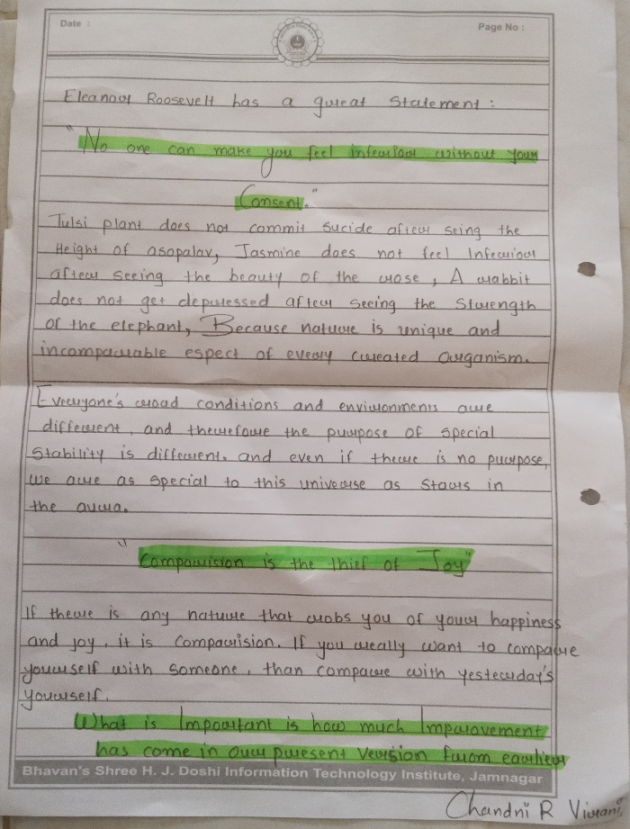 Date :
Page No :
Eleanour Roosevelt has a great Statement :
"No one can make you feel inferior without your
Consent."
Tulsi plant does not commit sucide after seing the
Height of asopalav, Jasmine does not feel Inferior
after seeing the beauty of the rose, A rabbit
does not get depressed after seeing the Strength
of the elephant, Because nature is unique and
incomparable espect of every created Organism.
Everyone's road conditions and environments are
different, and therefore the purpose of special
Stability is different. and even if there is no purpose,
we are as special to this universe as Stars in
the aura.
"Comparision is the thief of Joy"
If there is any nature that robs you of your happiness
and joy, it is Comparision. If you really want to compare
yourself with someone, than compare with yesterday's
yourself.
What is Important is how much Improvement
has come in our present Version from earlier
Bhavan's Shree H. J. Doshi Information Technology Institute, Jamnagar
Chandni R Virani